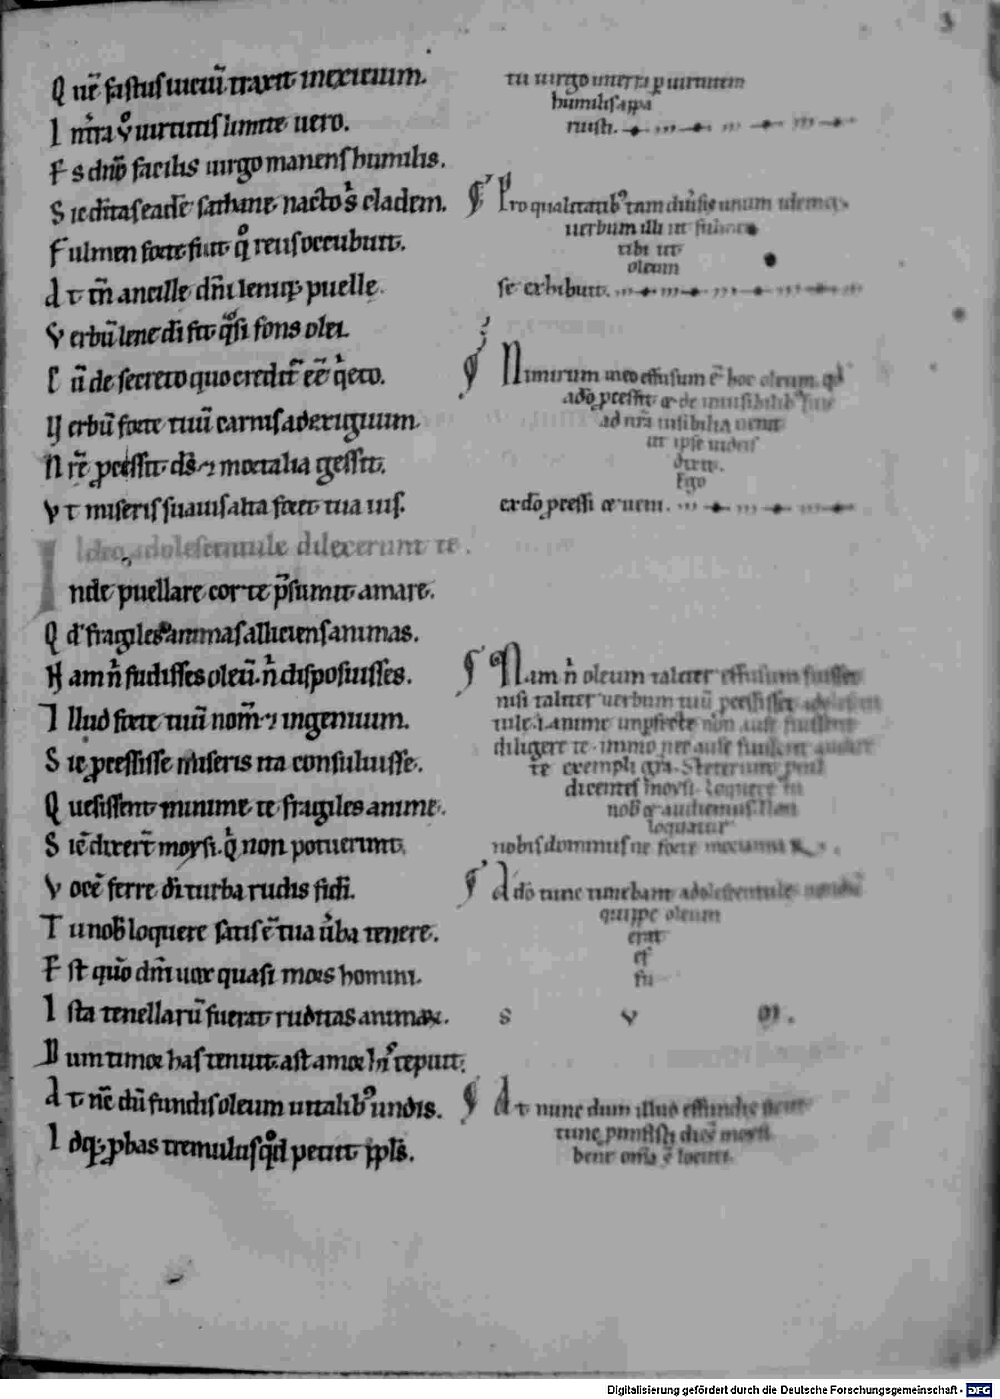 Q uē fastus uiciū traxit in exicium.
I nt̄ra uirtutis limite uero.
E s dn̄o facilis uirgo manens humilis.
S ic ditas eadē sathane nacto cladem.
F ulmen forte fuit q̊ reus occubuit.
A t tn̄ ancille dn̄i leniꝙ puelle.
V erbū lene di fit q̊si fons olei.
ū de secreto quo credit̄ eē
U erbū forte tuū carnis ad exiguum.
N rē p̄cessit ds̄ ⁊ mortalia gessit.
V t miseris suauis alta foret tua uis.
Ideo adolescentule dilexerunt te.
I nde puellare cor te p̄sumit amare.
Q d' fragiles animas alliciens animas.
N am n̄ fudisses oleū n̄ disposuisses.
I llud forte tuū nom̄ ⁊ ingenuum.
S ic p̄cessisse miseris ita consuluisse.
Q uesissent minime te fragiles anime.
S ic dixert̄ moysi. q̄ non potuerunt.
V ocē ferre di turba rudis fidi.
T u nob loquere satis ē tua ūba tenere.
E st quō dn̄i uox quasi mors homini.
I sta tenellarū fuerat ruditas animarꝝ.
D um timor has tenuit ast amor
A t nē dū fundis oleum uitalib' undis.
I dꝙ p̄bas tremulus qd petit ipl̄s.
tu uirgo uirtutem
humilis appa
ruisti.
Pro qualitatib' tam diuersis unum idemq;
uerbum illi ut fulmen
tibi ut
oleum
se exhibuit.
Nimirum in eo effusum ē hoc oleum qd
a do p̄cessit ⁊ de inuisibilib'
ad nr̄a uisibilia uenit
ut ipse
dicit.
Ego
ex do p̄cessi ⁊ ueni.
Nam n̄ oleum taliter effusum fuisset
nisi taliter uerbum tuū p̄cessisset adolescen
tule .i. anime inpfecte non ause fuissent
diligere te. immo nec ause fuissent audire
te exempli gra. Steterunt
dicentes moysi. Loquere tu
nob ⁊ audiemus. Non
loquatur
nobis dominus ne forte moriamur.
Ado tunc timebant adolescentule
quippe oleum
erat
ef
fu
S V M.
At nunc dum illud effundis
tunc dices moysi
bene om̄ia ē locutus
Digitalisierung gefördert durch die Deutsche Forschungsgemeinschaft - DFG